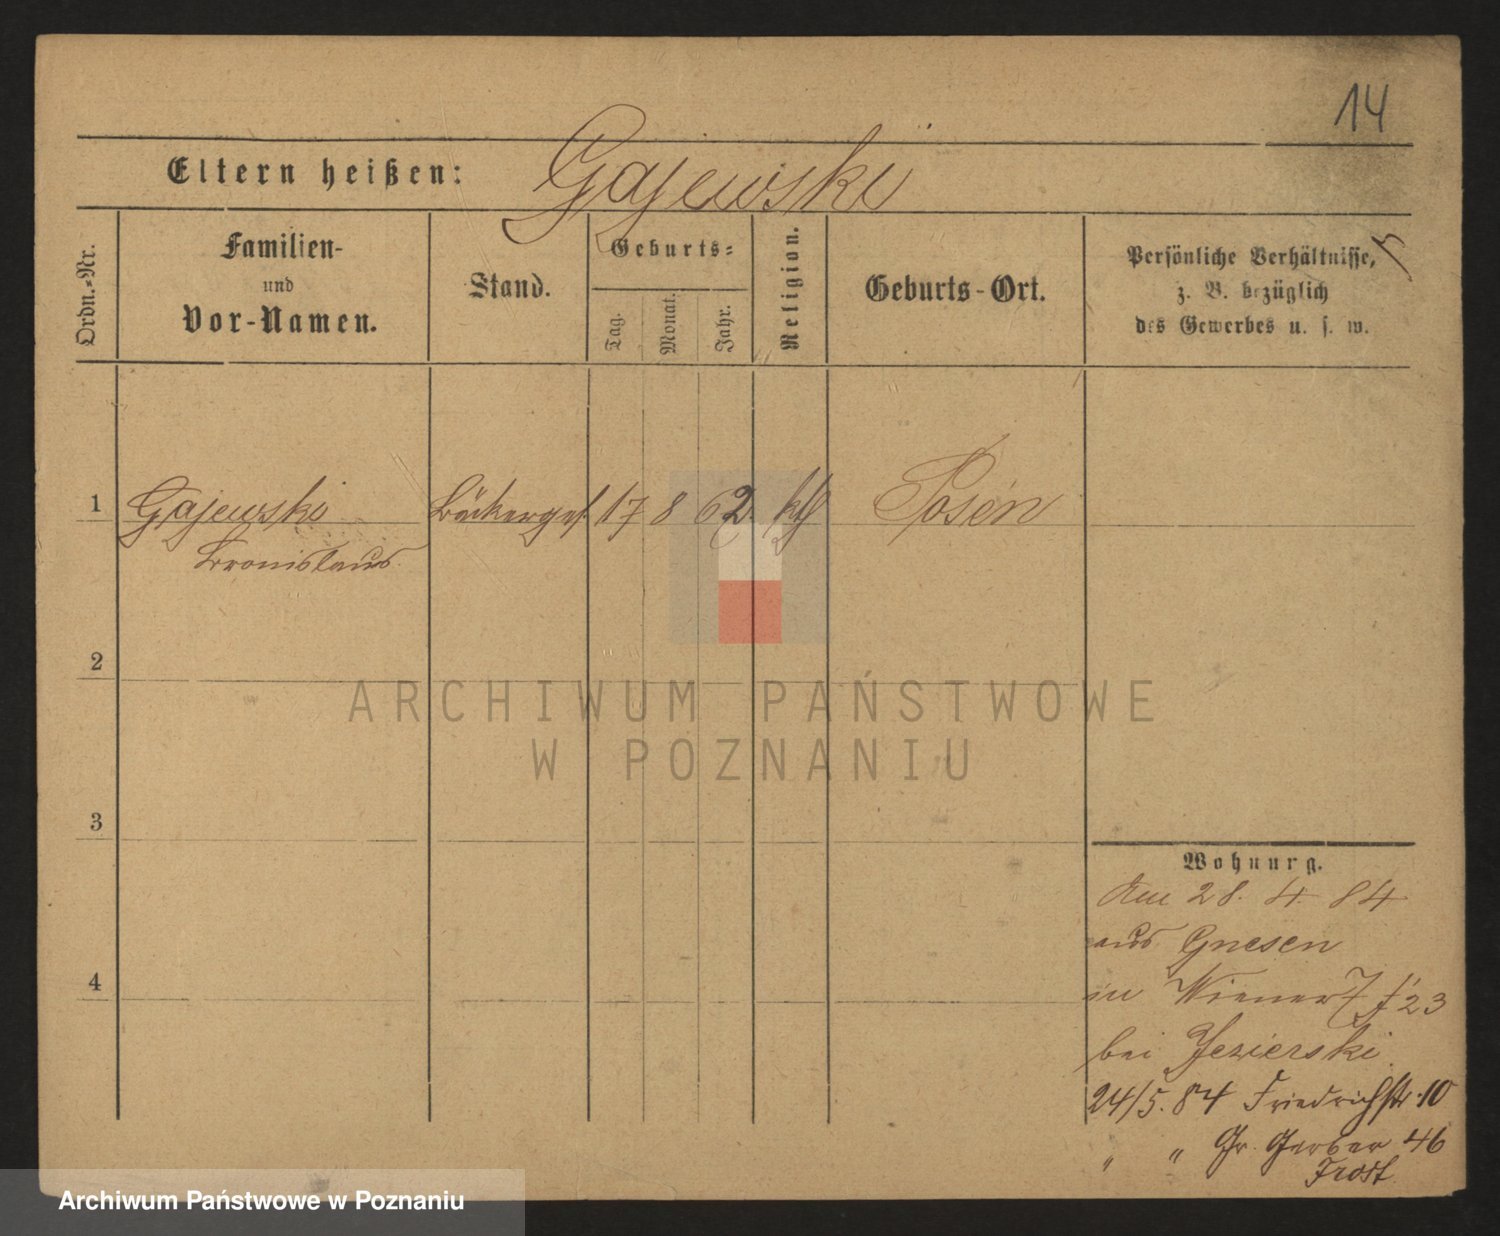 14
Eltern heißen: Gajewski
Ordn.-Nr.
Familien-
und
Vor-Namen.
Stand.
Geburts-
Tag.
Monat.
Jahr.
Religion.
Geburts-Ort.
Persönliche Verhältnisse,
z. B. bezüglich
des Gewerbes u. s. w.
1 Gajewski Bäckerges. 17 8 62 kth Posen
Bronislaus
2
3
4
Wohnung.
Am 28. 4. 84
aus Gnesen
in Wiener 23
bei Jezierski
24/5. 84 Friedrichstr. 10
" " Gr. Gerber 46
Frost
ARCHIWUM PAŃSTWOWE
W POZNANIU
Archiwum Państwowe w Poznaniu